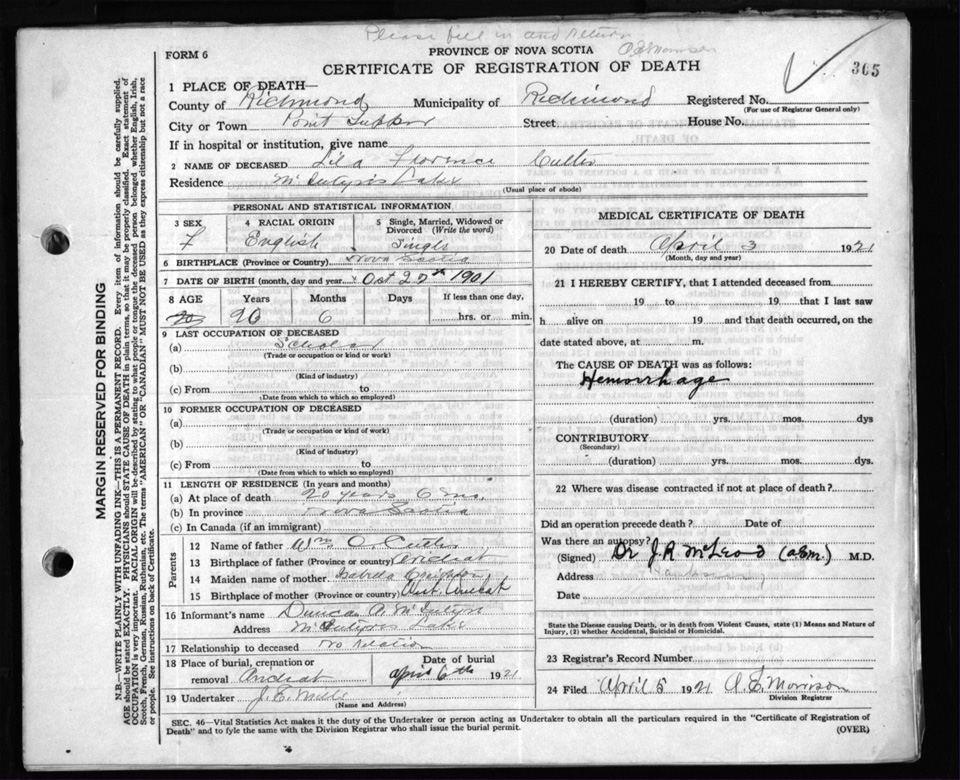 Please fill in and return
A. E. Morrison
FORM 6
PROVINCE OF NOVA SCOTIA
CERTIFICATE OF REGISTRATION OF DEATH
305
1 PLACE OF DEATH—
County of Richmond Municipality of Richmond Registered No.
(For use of Registrar General only)
City or Town Point Tupper Street House No.
If in hospital or institution, give name
2 NAME OF DECEASED Lila Florence Cutler
Residence McIntyre's Lake
(Usual place of abode)
PERSONAL AND STATISTICAL INFORMATION
3 SEX F
4 RACIAL ORIGIN English
5 Single, Married, Widowed or Divorced (Write the word) Single
6 BIRTHPLACE (Province or Country) Nova Scotia
7 DATE OF BIRTH (month, day and year) Oct 27th 1901
8 AGE Years Months Days If less than one day,
20 20 6 hrs. or min.
9 LAST OCCUPATION OF DECEASED
(a) Scholar
(Trade or occupation or kind or work)
(b)
(Kind of industry)
(c) From to
(Date from which to which so employed)
10 FORMER OCCUPATION OF DECEASED
(a)
(Trade or occupation or kind of work)
(b)
(Kind of industry)
(c) From to
(Date from which to which so employed)
11 LENGTH OF RESIDENCE (In years and months)
(a) At place of death 20 years 6 mo.
(b) In province Nova Scotia
(c) In Canada (if an immigrant)
Parents
12 Name of father Wm O. Cutler
13 Birthplace of father (Province or country) Arichat
14 Maiden name of mother Isabella Creighton
15 Birthplace of mother (Province or country) West Arichat
16 Informant's name Duncan A. McIntyre
Address McIntyres Lake
17 Relationship to deceased No relation
18 Place of burial, cremation or removal Arichat
Date of burial April 6th 1921
19 Undertaker J. E. Mills
(Name and Address)
MEDICAL CERTIFICATE OF DEATH
20 Date of death April 3 1921
(Month, day and year)
21 I HEREBY CERTIFY, that I attended deceased from
19 to 19 that I last saw
h alive on 19 and that death occurred, on
date stated above, at m.
The CAUSE OF DEATH was as follows:
Hemorrhage
(duration) yrs. mos. dys
CONTRIBUTORY
(Secondary)
(duration) yrs. mos. dys.
22 Where was disease contracted if not at place of death?
Did an operation precede death? Date of
Was there an autopsy?
(Signed) Dr J. R. McLeod (a.E.m.) M.D.
Address
Date
State the Disease causing Death, or in death from Violent Causes, state (1) Means and Nature of Injury, (2) whether Accidental, Suicidal or Homicidal.
23 Registrar's Record Number
24 Filed April 5 1921 A. E. Morrison
Division Registrar
SEC. 46—Vital Statistics Act makes it the duty of the Undertaker or person acting as Undertaker to obtain all the particulars required in the "Certificate of Registration of
Death" and to fyle the same with the Division Registrar who shall issue the burial permit.
(OVER)
MARGIN RESERVED FOR BINDING
N.B.—WRITE PLAINLY WITH UNFADING INK—THIS IS A PERMANENT RECORD. Every item of information should be carefully supplied.
AGE should be stated EXACTLY. PHYSICIANS should STATE CAUSE OF DEATH in plain terms, so that it may be properly classified. Exact statement of
OCCUPATION is very important. RACIAL ORIGIN will be described by stating to what people or tongue the deceased person belonged, whether English, Irish,
Scotch, French, German, Russian, Ruthenian, etc. The terms "AMERICAN" OR "CANADIAN" MUST NOT BE USED as they express citizenship but not a race
or people. See instructions on back of Certificate.